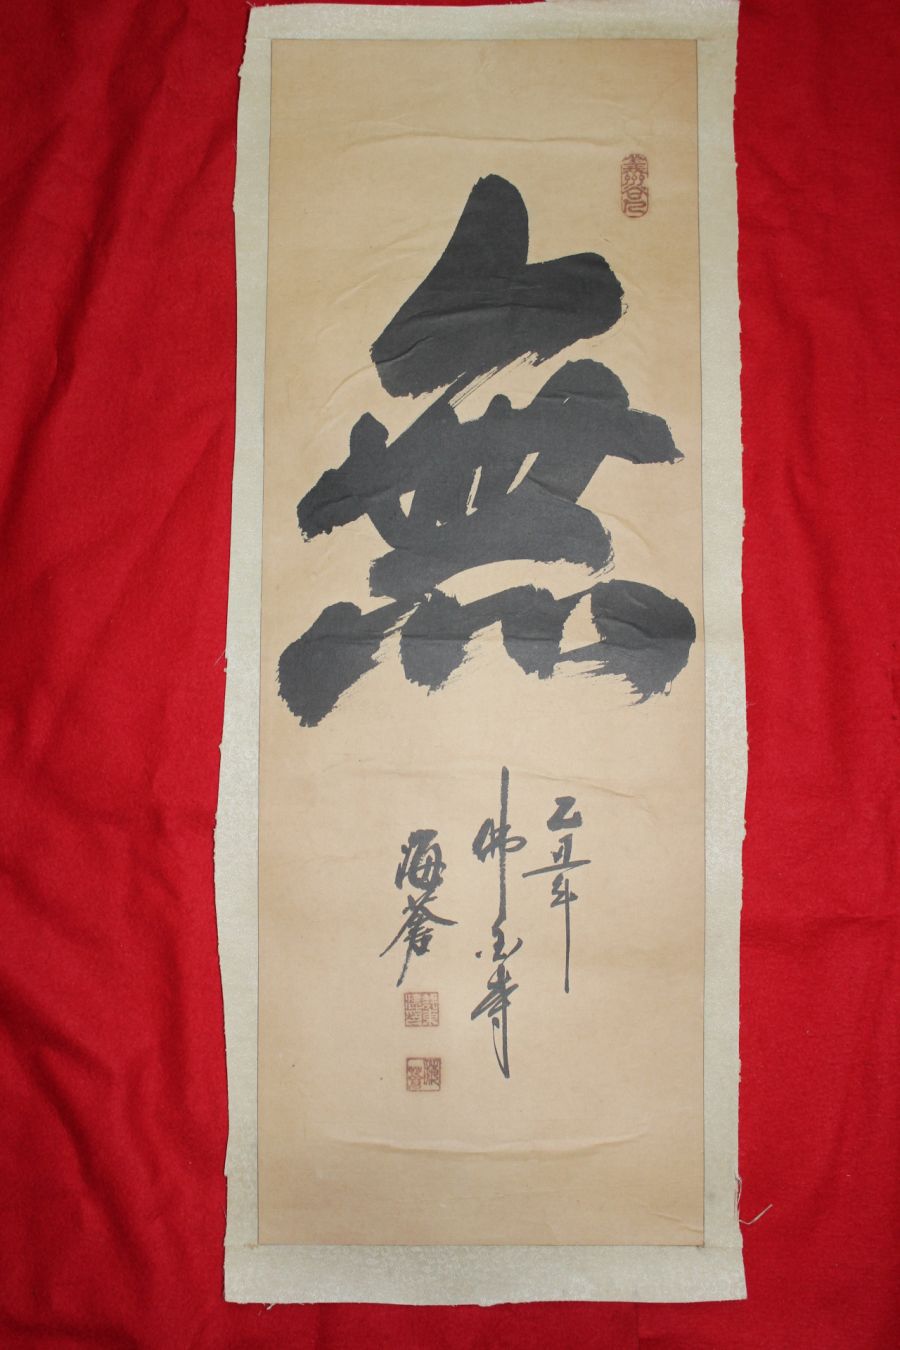 無
乙丑年
佛国寺
海蒼